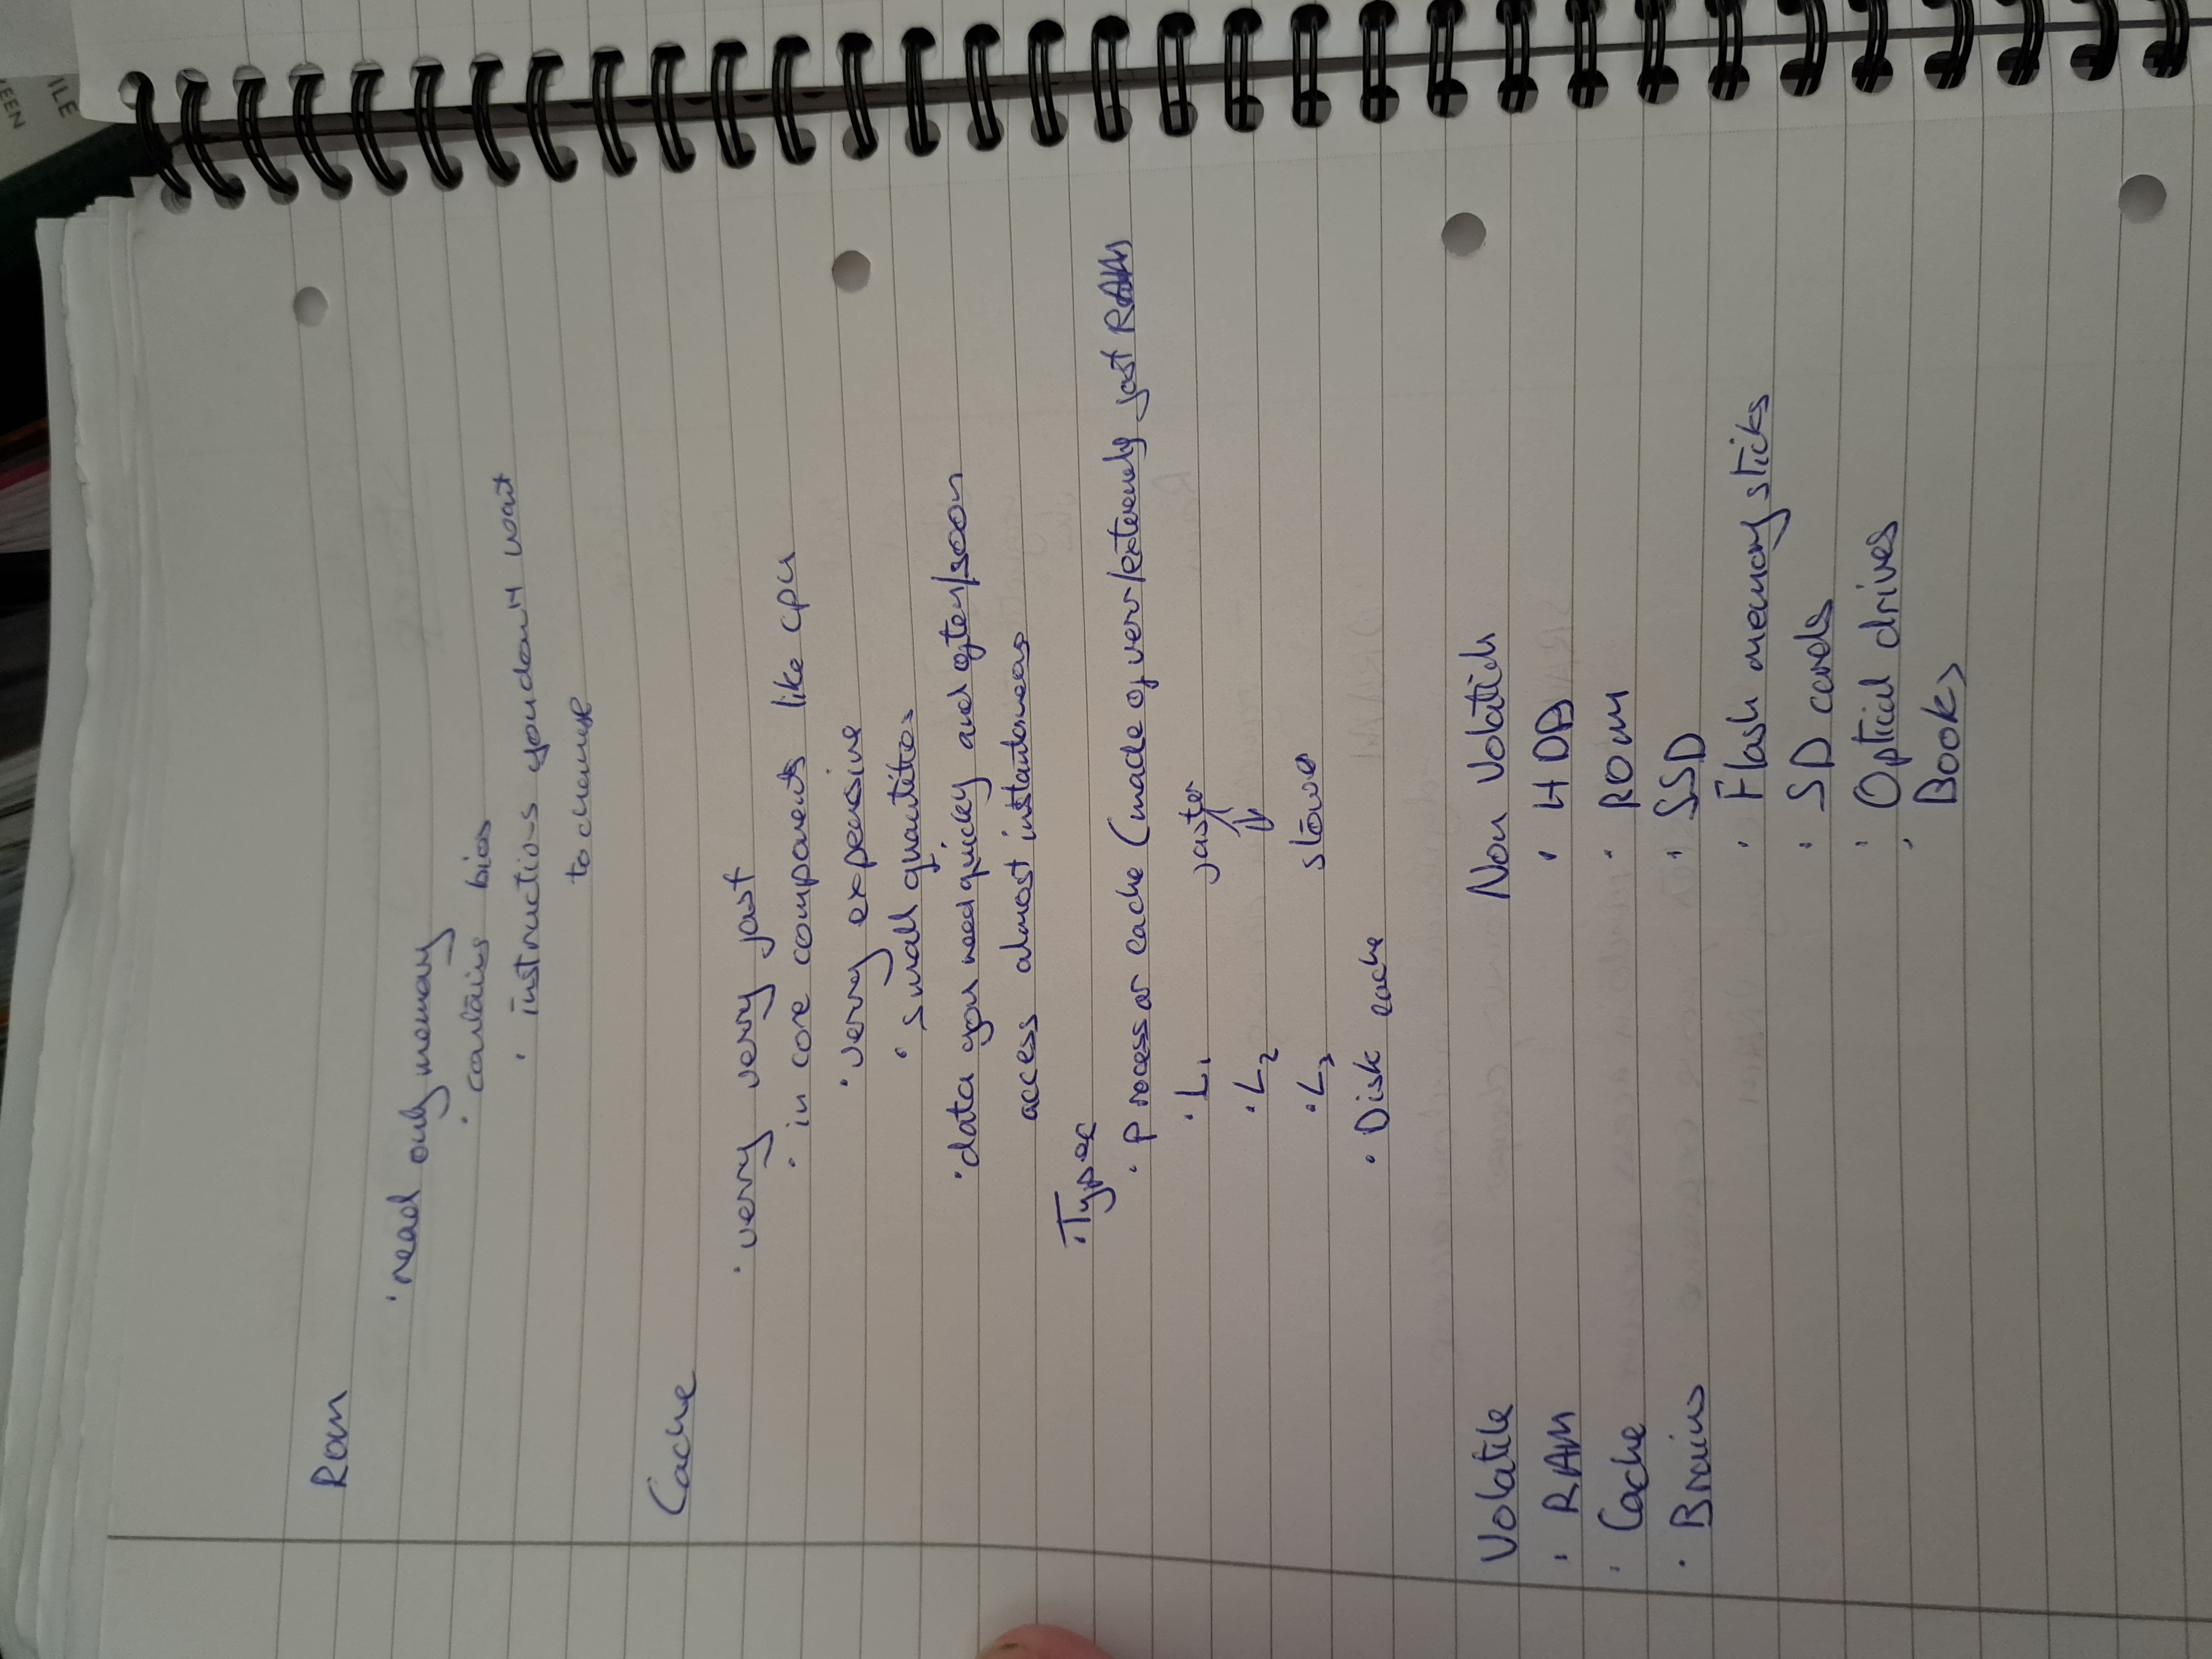 Rom
· read only memory
· contains bios
· instructions you don't want
to change
Cache
· very very fast
· in core components like cpu
· very expensive
· small quantities
· data you need quickly and often/soon
access almost instantaneous
· Types
· Processor cache (made of very/extremely fast RAM)
· L1 faster
· L2
· L3 slower
· Disk cache
Volatile Non Volatile
· RAM · HDD
· Cache · ROM
· Brains · SSD
· Flash memory sticks
· SD cards
· Optical drives
· Books